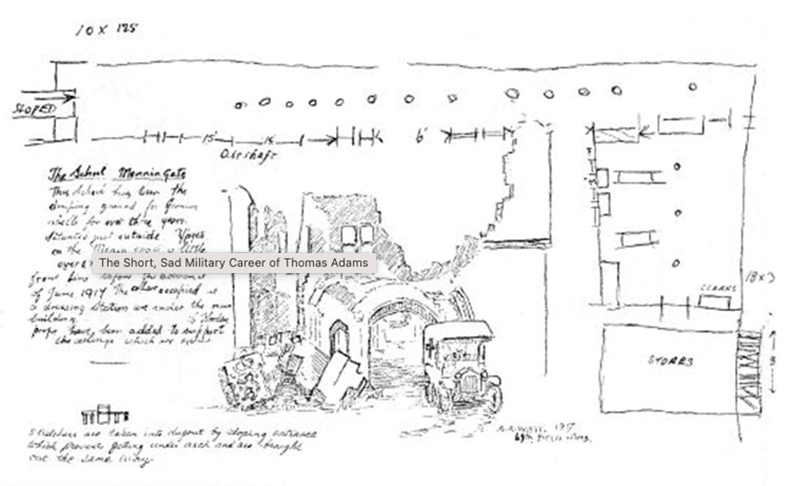 10 X 125
SLOPED
15'
15'
6'
Airshaft
The School Mennin Gate
This School has been the
dumping ground for German
shells for over three years.
Situated just outside Ypres
on the Menin road a little
over
The Short, Sad Military Career of Thomas Adams
front line before the
of June 1917. The cellar occupied as
a dressing station are under the main
building.
props have been added to support
the ceilings which are
CLERKS
18 x 3
STORES
Stretchers are taken into dugout by sloping entrance
which prevents going under arch and are brought
out the same way.
1917
69th Field Amb.